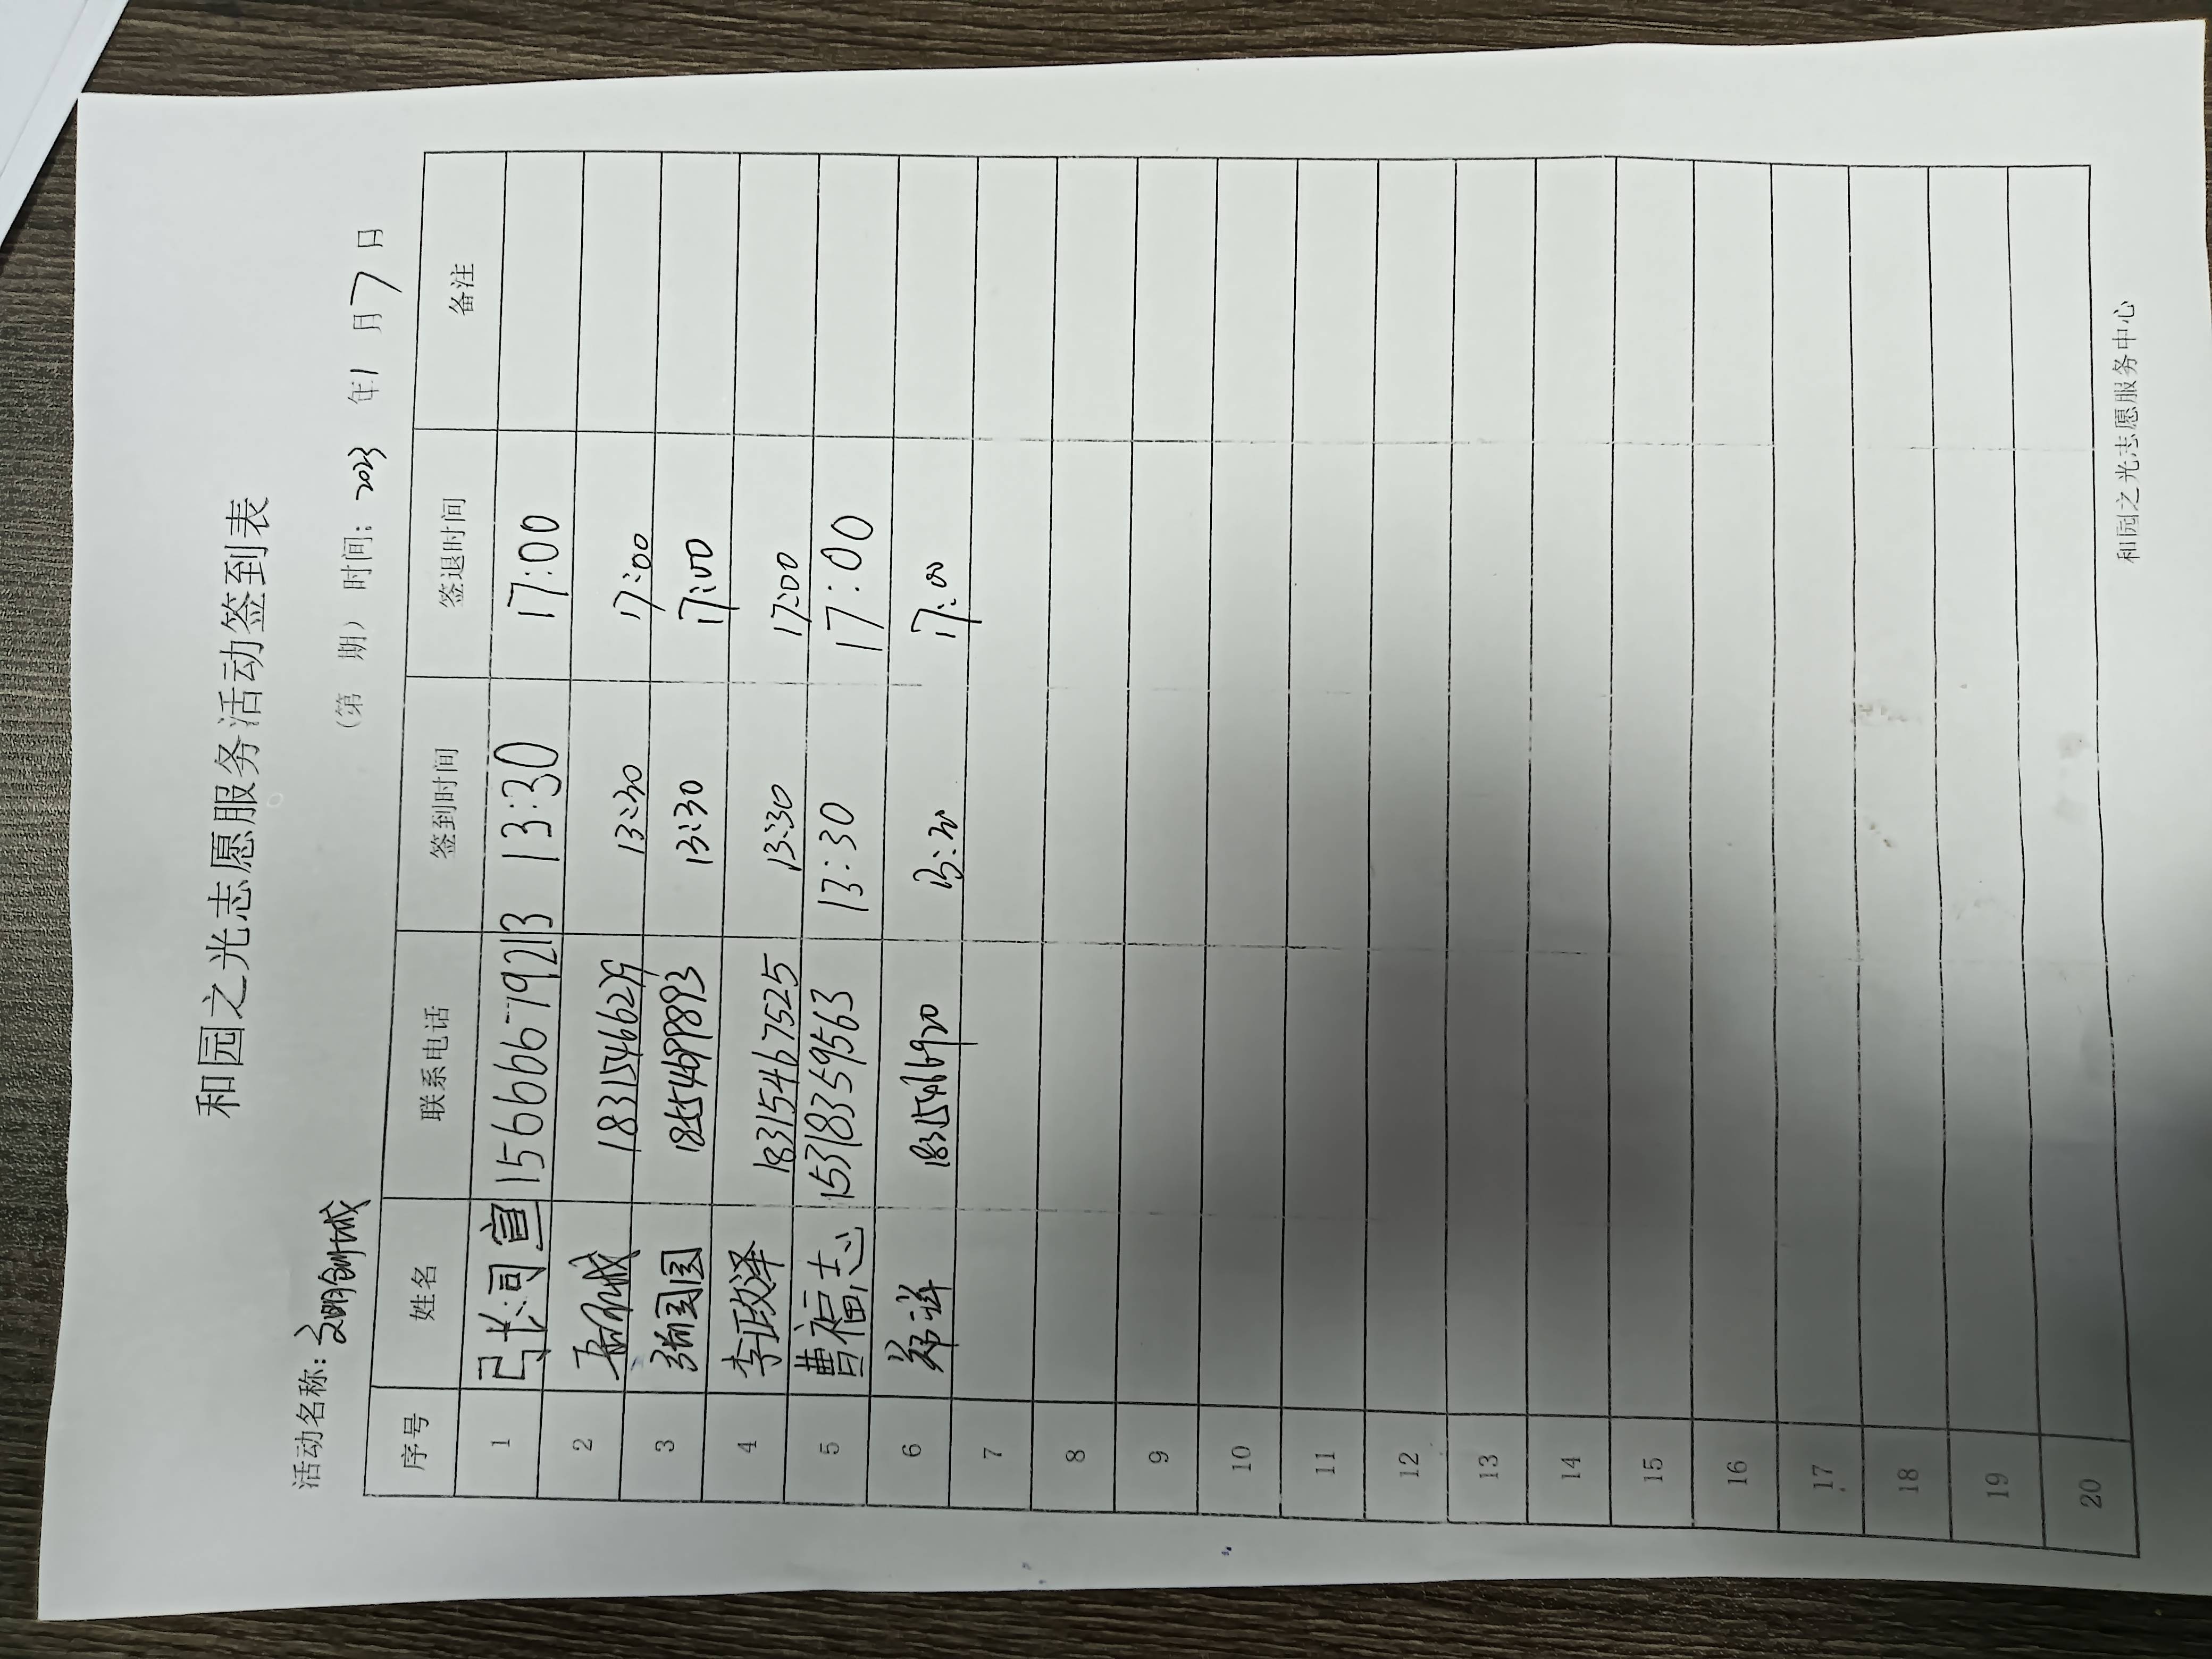 和园之光志愿服务活动签到表
(第 期) 时间: 2023 年 1 月 7 日
活动名称: 文明创城
序号 姓名 联系电话 签到时间 签退时间 备注
1 张同宣 15666679213 13:30 17:00
2 18315466279 13:30 17:00
3 18454699893 13:30 17:00
4 李政泽 18315467525 13:30 17:00
5 曹福志 15318359563 13:30 17:00
6 郑祥 18315466920 13:30 17:00
7
8
9
10
11
12
13
14
15
16
17
18
19
20
和园之光志愿服务中心